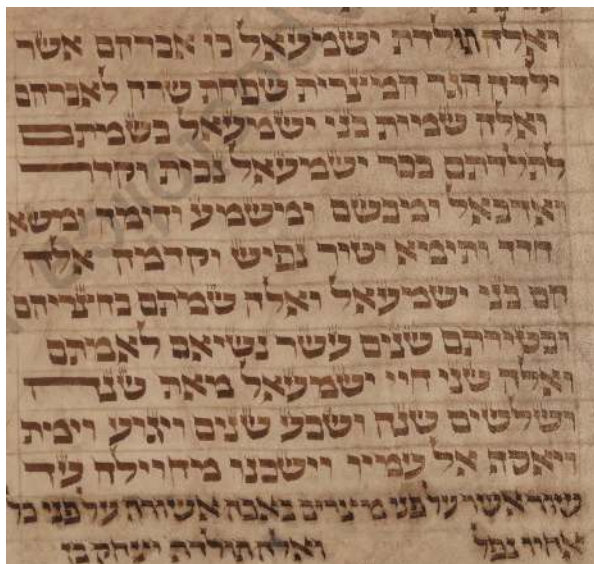 ואלה תולדת ישמעאל בן אברהם אשר
ילדה הגר המצרית שפחת שרה לאברהם
ואלה שמות בני ישמעאל בשמתם
לתולדתם בכר ישמעאל נבית וקדר
ואדבאל ומבשם ומשמע ודומה ומשא
חדד ותימא יטור נפיש וקדמה אלה
הם בני ישמעאל ואלה שמתם בחצריהם
ובטירתם שנים עשר נשיאם לאמתם
ואלה שני חיי ישמעאל מאת שנה
ושלשים שנה ושבע שנים ויגוע וימת
ויאסף אל עמיו וישכנו מחוילה עד
שור אשר על פני מצרים באכה אשורה על פני כל
אחיו נפל ואלה תולדת יצחק בן